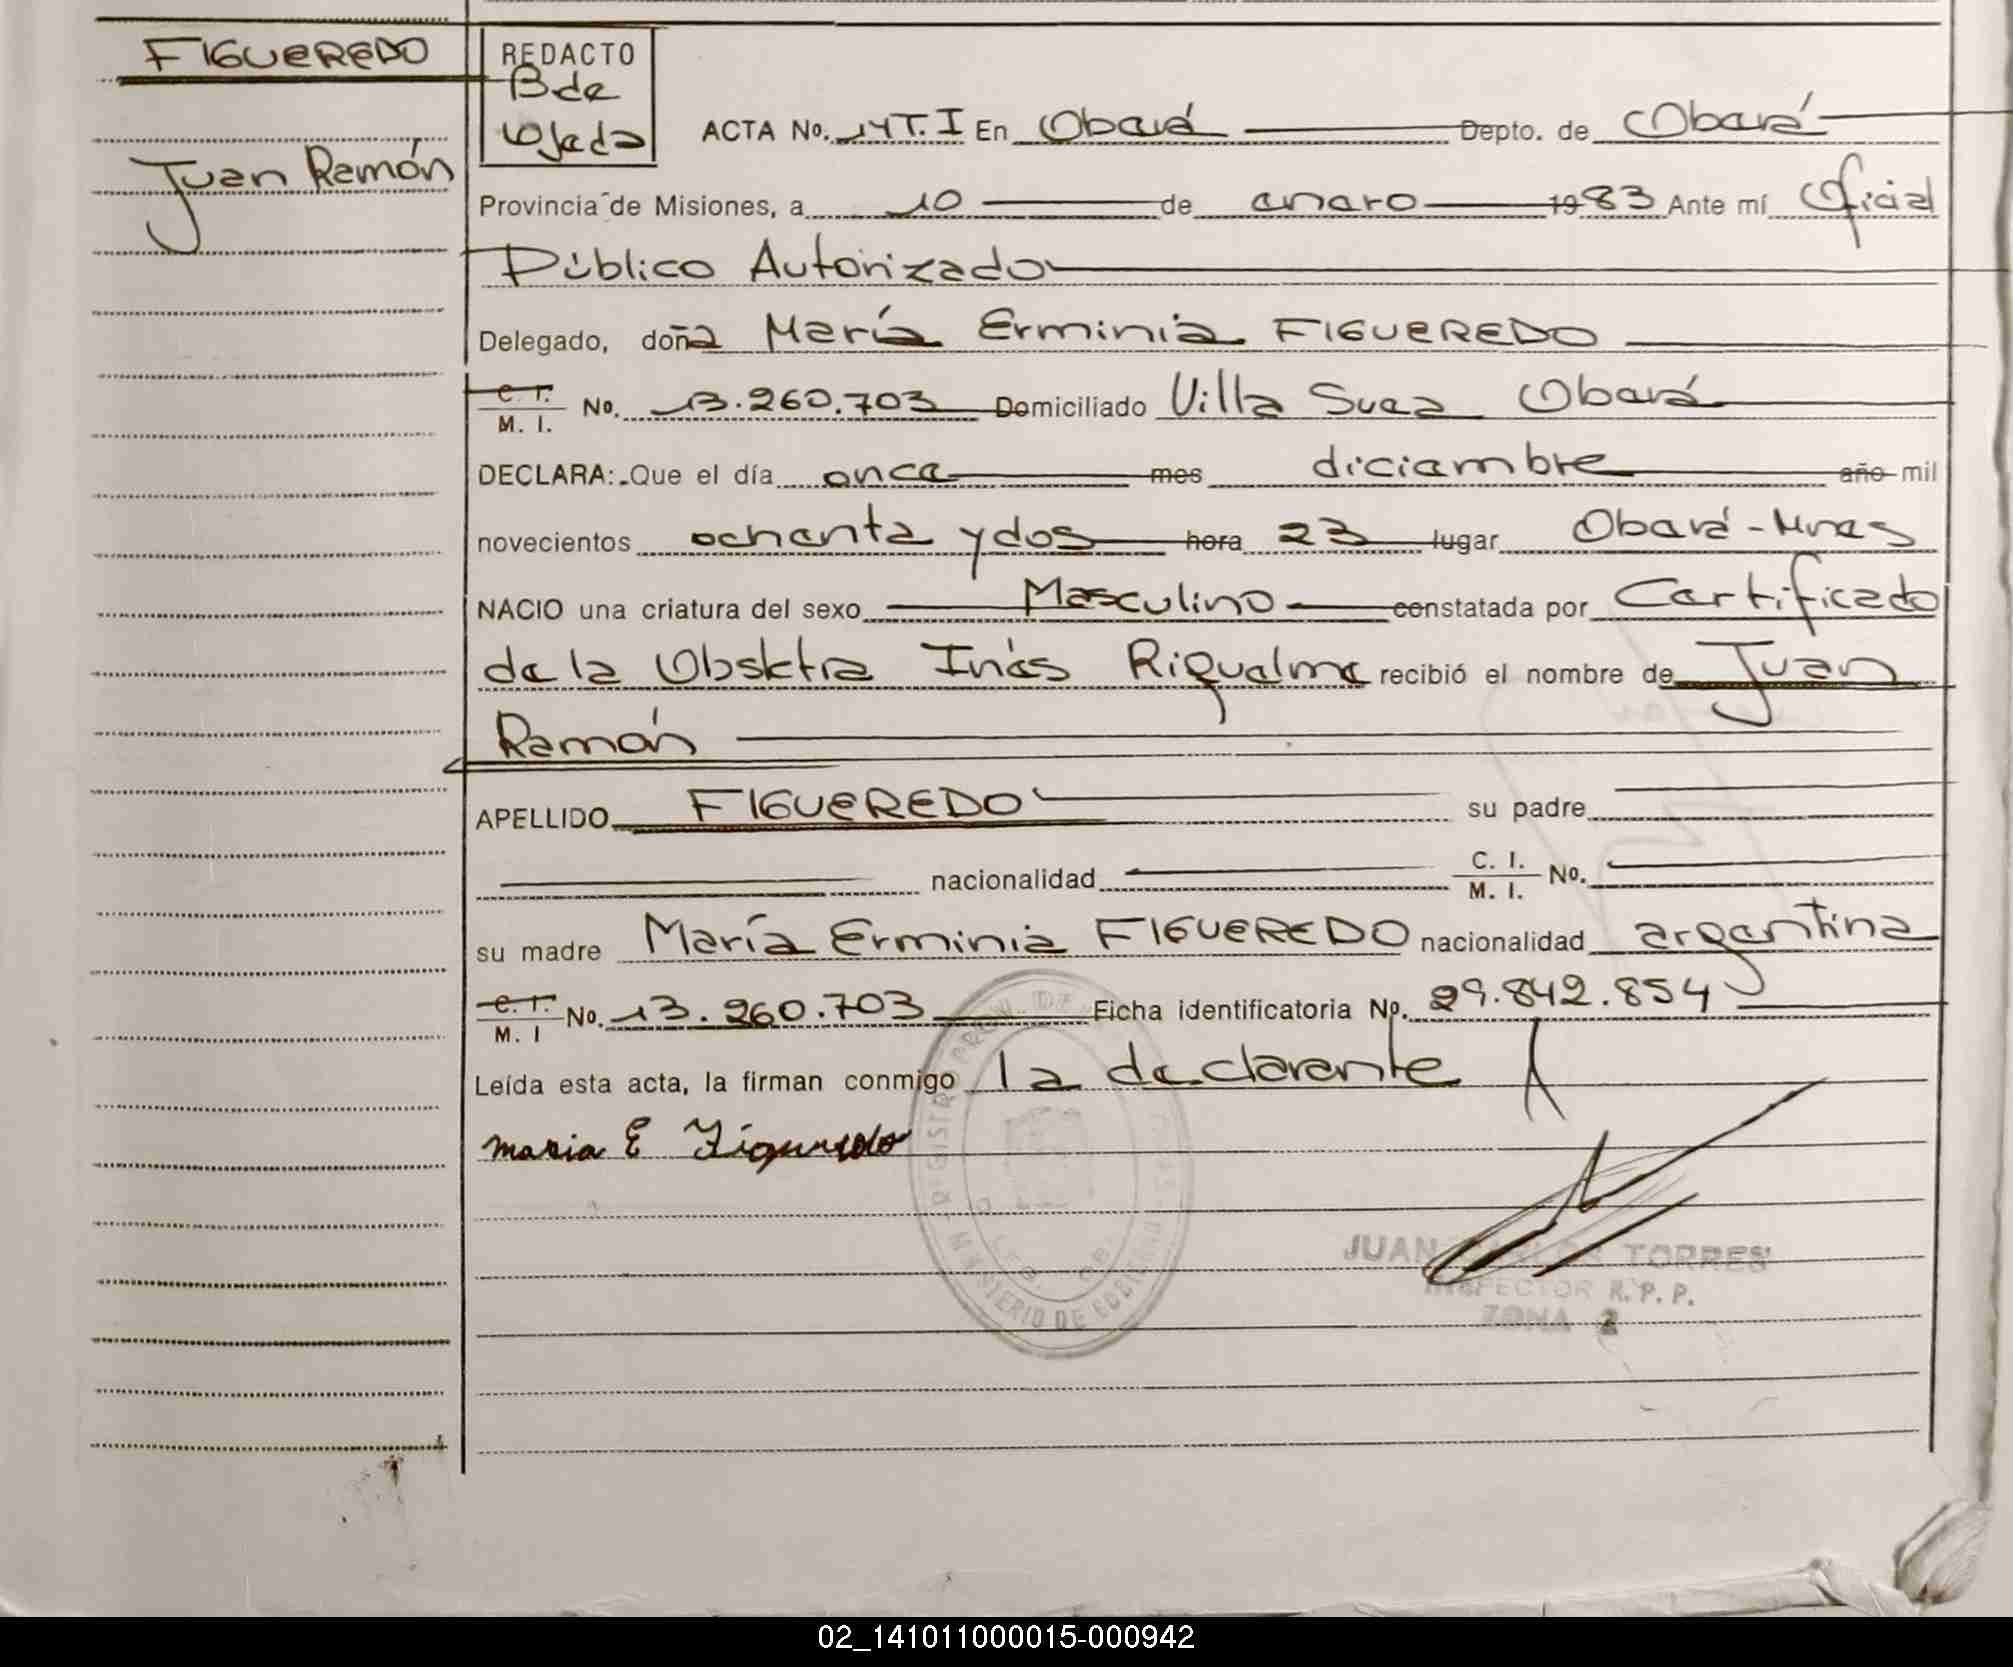 FIGUEREDO
Juan Ramón
REDACTO
B de
Ojeda
ACTA No. 14 T. I En Oberá Depto. de Oberá
Provincia de Misiones, a 10 de enero 1983 Ante mí Oficial
Público Autorizado
Delegado, doña María Erminia FIGUEREDO
C. I. / M. I. No. 13.260.703 Domiciliado Villa Suea Oberá
DECLARA: Que el día once mes diciembre año mil
novecientos ochenta y dos hora 23 lugar Oberá - Mnes
NACIO una criatura del sexo Masculino constatada por Certificado
de la Obstetra Inés Riquelme recibió el nombre de Juan
Ramón
APELLIDO FIGUEREDO su padre
nacionalidad C. I. / M. I. No.
su madre María Erminia FIGUEREDO nacionalidad argentina
C. I. / M. I No. 13.260.703 Ficha identificatoria No. 29.842.854
Leída esta acta, la firman conmigo la declarante
maria E Figueredo
JUAN CARLOS TORRES
INSPECTOR R. P. P.
ZONA 2
MINISTERIO DE GOBIERNO
02_141011000015-000942